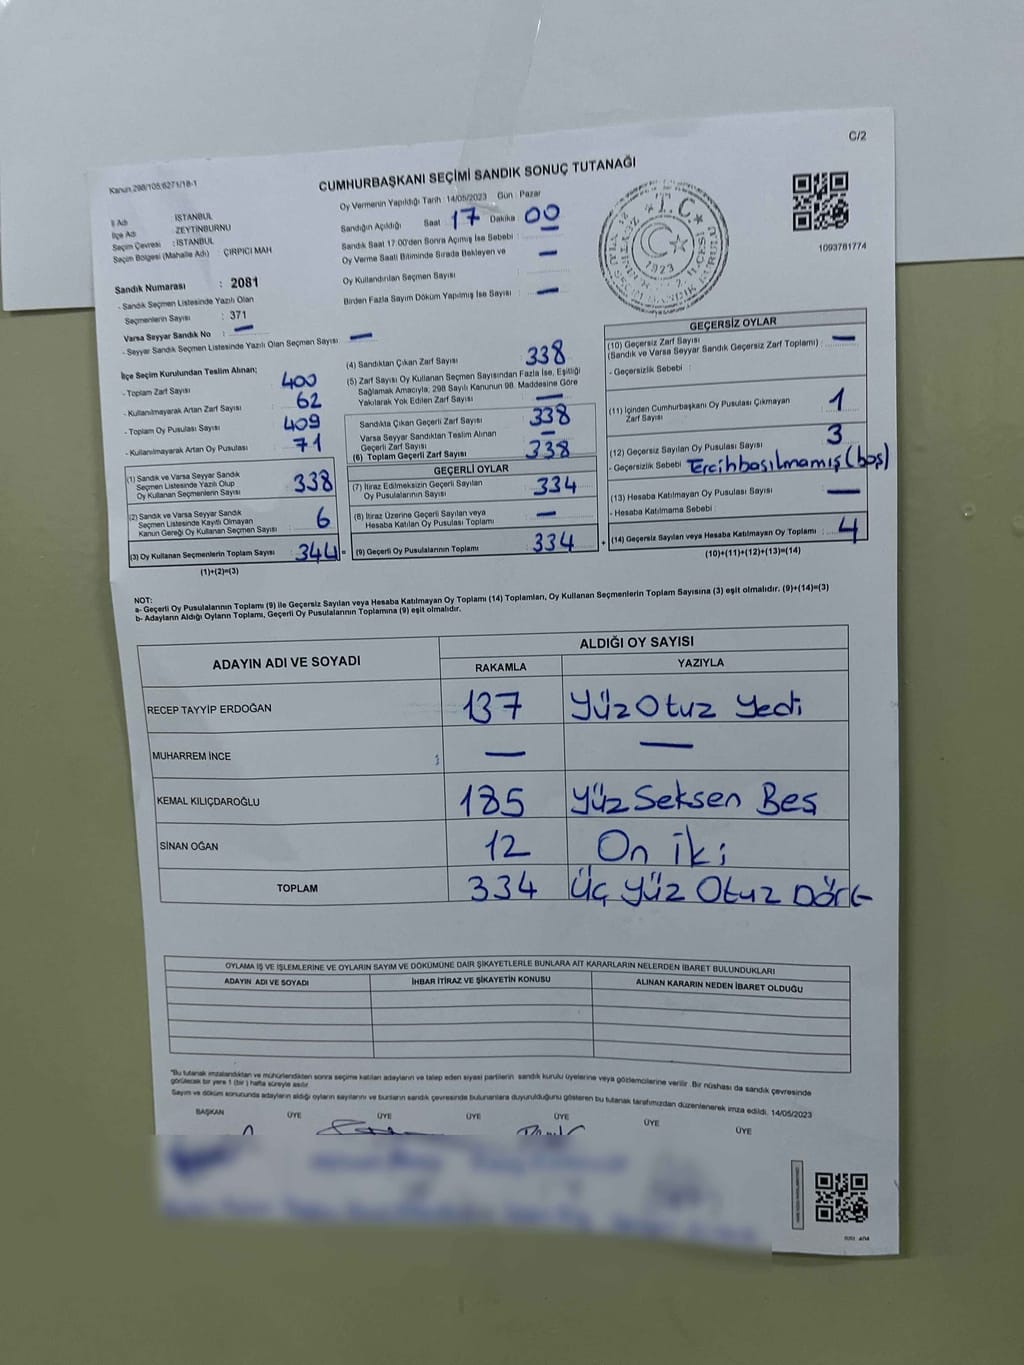 C/2
Kanun.298/105;6271/18-1
CUMHURBAŞKANI SEÇİMİ SANDIK SONUÇ TUTANAĞI
İl Adı : İSTANBUL
İlçe Adı : ZEYTİNBURNU
Seçim Çevresi : İSTANBUL
Seçim Bölgesi (Mahalle Adı) : ÇIRPICI MAH
Sandık Numarası : 2081
- Sandık Seçmen Listesinde Yazılı Olan
Seçmenlerin Sayısı : 371
Varsa Seyyar Sandık No : —
- Seyyar Sandık Seçmen Listesinde Yazılı Olan Seçmen Sayısı : —
Oy Vermenin Yapıldığı Tarih : 14/05/2023 Gün : Pazar
Sandığın Açıldığı Saat 17 Dakika 00
Sandık Saat 17.00'den Sonra Açımış İse Sebebi : —
Oy Verme Saati Bitiminde Sırada Bekleyen ve —
Oy Kullandırılan Seçmen Sayısı
Birden Fazla Sayım Döküm Yapılmış İse Sayısı : —
T.C.
1923
1093781774
İlçe Seçim Kurulundan Teslim Alınan;
- Toplam Zarf Sayısı 400
- Kullanılmayarak Artan Zarf Sayısı 62
- Toplam Oy Pusulası Sayısı 409
- Kullanılmayarak Artan Oy Pusulası 71
(1) Sandık ve Varsa Seyyar Sandık
Seçmen Listesinde Yazılı Olup
Oy Kullanan Seçmenlerin Sayısı 338
(2) Sandık ve Varsa Seyyar Sandık
Seçmen Listesinde Kayıtlı Olmayan
Kanun Gereği Oy Kullanan Seçmen Sayısı 6
(3) Oy Kullanan Seçmenlerin Toplam Sayısı 344 =
(1)+(2)=(3)
(4) Sandıktan Çıkan Zarf Sayısı 338
(5) Zarf Sayısı Oy Kullanan Seçmen Sayısından Fazla İse, Eşitliği
Sağlamak Amacıyla; 298 Sayılı Kanunun 98. Maddesine Göre
Yakılarak Yok Edilen Zarf Sayısı —
Sandıkta Çıkan Geçerli Zarf Sayısı 338
Varsa Seyyar Sandıktan Teslim Alınan
Geçerli Zarf Sayısı —
(6) Toplam Geçerli Zarf Sayısı 338
GEÇERLİ OYLAR
(7) İtiraz Edilmeksizin Geçerli Sayılan
Oy Pusulalarının Sayısı 334
(8) İtiraz Üzerine Geçerli Sayılan veya
Hesaba Katılan Oy Pusulası Toplamı —
(9) Geçerli Oy Pusulalarının Toplamı 334 +
GEÇERSİZ OYLAR
(10) Geçersiz Zarf Sayısı
(Sandık ve Varsa Seyyar Sandık Geçersiz Zarf Toplamı) : —
- Geçersizlik Sebebi :
(11) İçinden Cumhurbaşkanı Oy Pusulası Çıkmayan
Zarf Sayısı 1
(12) Geçersiz Sayılan Oy Pusulası Sayısı 3
- Geçersizlik Sebebi Tercih basılmamış (boş)
(13) Hesaba Katılmayan Oy Pusulası Sayısı —
- Hesaba Katılmama Sebebi :
(14) Geçersiz Sayılan veya Hesaba Katılmayan Oy Toplamı : 4
(10)+(11)+(12)+(13)=(14)
NOT:
a- Geçerli Oy Pusulalarının Toplamı (9) ile Geçersiz Sayılan veya Hesaba Katılmayan Oy Toplamı (14) Toplamları, Oy Kullanan Seçmenlerin Toplam Sayısına (3) eşit olmalıdır. (9)+(14)=(3)
b- Adayların Aldığı Oyların Toplamı, Geçerli Oy Pusulalarının Toplamına (9) eşit olmalıdır.
ADAYIN ADI VE SOYADI
ALDIĞI OY SAYISI
RAKAMLA YAZIYLA
RECEP TAYYİP ERDOĞAN 137 Yüz Otuz Yedi
MUHARREM İNCE — —
KEMAL KILIÇDAROĞLU 185 Yüz Seksen Beş
SİNAN OĞAN 12 On İki
TOPLAM 334 Üç Yüz Otuz Dört
OYLAMA İŞ VE İŞLEMLERİNE VE OYLARIN SAYIM VE DÖKÜMÜNE DAİR ŞİKAYETLERLE BUNLARA AİT KARARLARIN NELERDEN İBARET BULUNDUKLARI
ADAYIN ADI VE SOYADI İHBAR İTİRAZ VE ŞİKAYETİN KONUSU ALINAN KARARIN NEDEN İBARET OLDUĞU
*Bu tutanak imzalandıktan ve mühürlendikten sonra seçime katılan adayların ve talep eden siyasi partilerin sandık kurulu üyelerine veya gözlemcilerine verilir. Bir nüshası da sandık çevresinde
görülecek bir yere 1 (bir) hafta süreyle asılır.
Sayım ve döküm sonucunda adayların aldığı oyların sayılarını ve bunların sandık çevresinde bulunanlara duyurulduğunu gösteren bu tutanak tarafımızdan düzenlenerek imza edildi. 14/05/2023
BAŞKAN ÜYE ÜYE ÜYE ÜYE ÜYE ÜYE